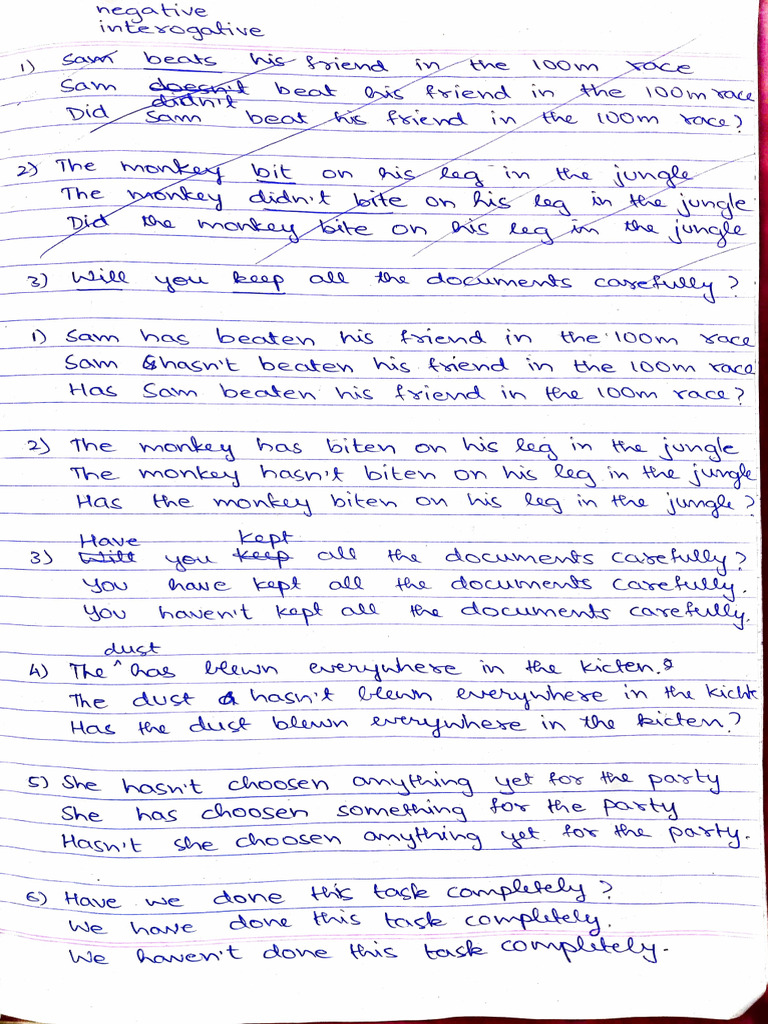 negative
interogative
1) Sam beats his friend in the 100m race
Sam doesn't beat his friend in the 100m race
didn't
Did Sam beat his friend in the 100m race?
2) The monkey bit on his leg in the jungle
The monkey didn't bite on his leg in the jungle
Did the monkey bite on his leg in the jungle
3) Will you keep all the documents carefully?
1) Sam has beaten his friend in the 100m race
Sam hasn't beaten his friend in the 100m race
Has Sam beaten his friend in the 100m race?
2) The monkey has biten on his leg in the jungle
The monkey hasn't biten on his leg in the jungle
Has the monkey biten on his leg in the jungle?
Have kept
3) Will you keep all the documents carefully?
You have kept all the documents carefully.
You haven't kept all the documents carefully.
dust
4) The ^ has blewn everywhere in the kicten.
The dust hasn't blewn everywhere in the kicht
Has the dust blewn everywhere in the kicten?
5) She hasn't choosen anything yet for the party
She has choosen something for the party
Hasn't she choosen anything yet for the party.
6) Have we done this task completely?
We have done this task completely.
We haven't done this task completely.